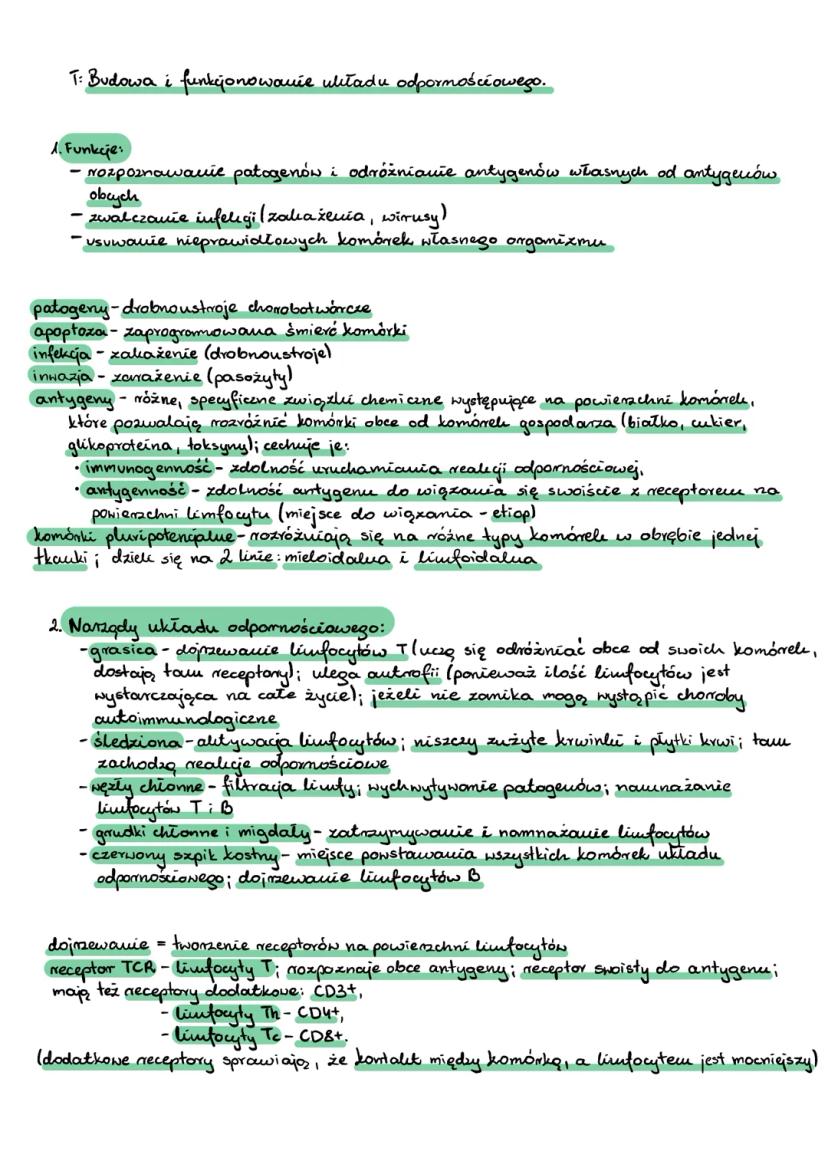 T: Budowa i funkcjonowanie układu odpornościowego.
1. Funkcje:
- rozpoznawanie patogenów i odróżnianie antygenów własnych od antygenów
obcych
- zwalczanie infekcji (zakażenia, wirusy)
- usuwanie nieprawidłowych komórek własnego organizmu
patogeny - drobnoustroje chorobotwórcze
apoptoza - zaprogramowana śmierć komórki
infekcja - zakażenie (drobnoustroje)
inwazja - zarażenie (pasożyty)
antygeny - różne, specyficzne związki chemiczne występujące na powierzchni komórek,
które pozwalają rozróżnić komórki obce od komórek gospodarza (białko, cukier,
glikoproteina, toksyny); cechuje je:
• immunogenność - zdolność uruchamiania reakcji odpornościowej,
• antygenność - zdolność antygenu do wiązania się swoiście z receptorem na
powierzchni limfocytu (miejsce do wiązania - etiop)
komórki pluripotencjalne - rozróżniają się na różne typy komórek w obrębie jednej
tkanki; dziele się na 2 linie: mieloidalna i limfoidalna
2. Narządy układu odpornościowego:
- grasica - dojrzewanie limfocytów T (uczą się odróżniać obce od swoich komórek,
dostają tam receptory); ulega autrofii (ponieważ ilość limfocytów jest
wystarczająca na całe życie); jeżeli nie zanika mogą wystąpić choroby
autoimmunologiczne
- śledziona - aktywacja limfocytów; niszczy zużyte krwinki i płytki krwi; tam
zachodzą reakcje odpornościowe
- węzły chłonne - filtracja limfy; wychwytywanie patogenów; namnażanie
limfocytów T i B
- grudki chłonne i migdały - zatrzymywanie i namnażanie limfocytów
- czerwony szpik kostny - miejsce powstawania wszystkich komórek układu
odpornościowego; dojrzewanie limfocytów B
dojrzewanie = tworzenie receptorów na powierzchni limfocytów
receptor TCR - limfocyty T; rozpoznaje obce antygeny; receptor swoisty do antygenu;
mają też receptory dodatkowe: CD3+,
- limfocyty Th - CD4+,
- limfocyty Tc - CD8+.
(dodatkowe receptory sprawiają, że kontakt między komórką, a limfocytem jest mocniejszy)